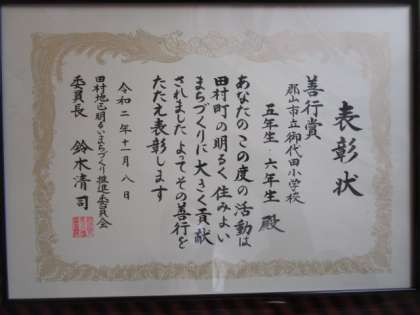 表彰状
善行賞
郡山市立御代田小学校
五年生・六年生 殿
あなたのこの度の活動は
田村町の明るく住みよい
まちづくりに大きく貢献
されましたよってその善行を
たたえ表彰します
令和二年十一月八日
田村地区明るいまちづくり推進委員会
委員長 鈴木清司